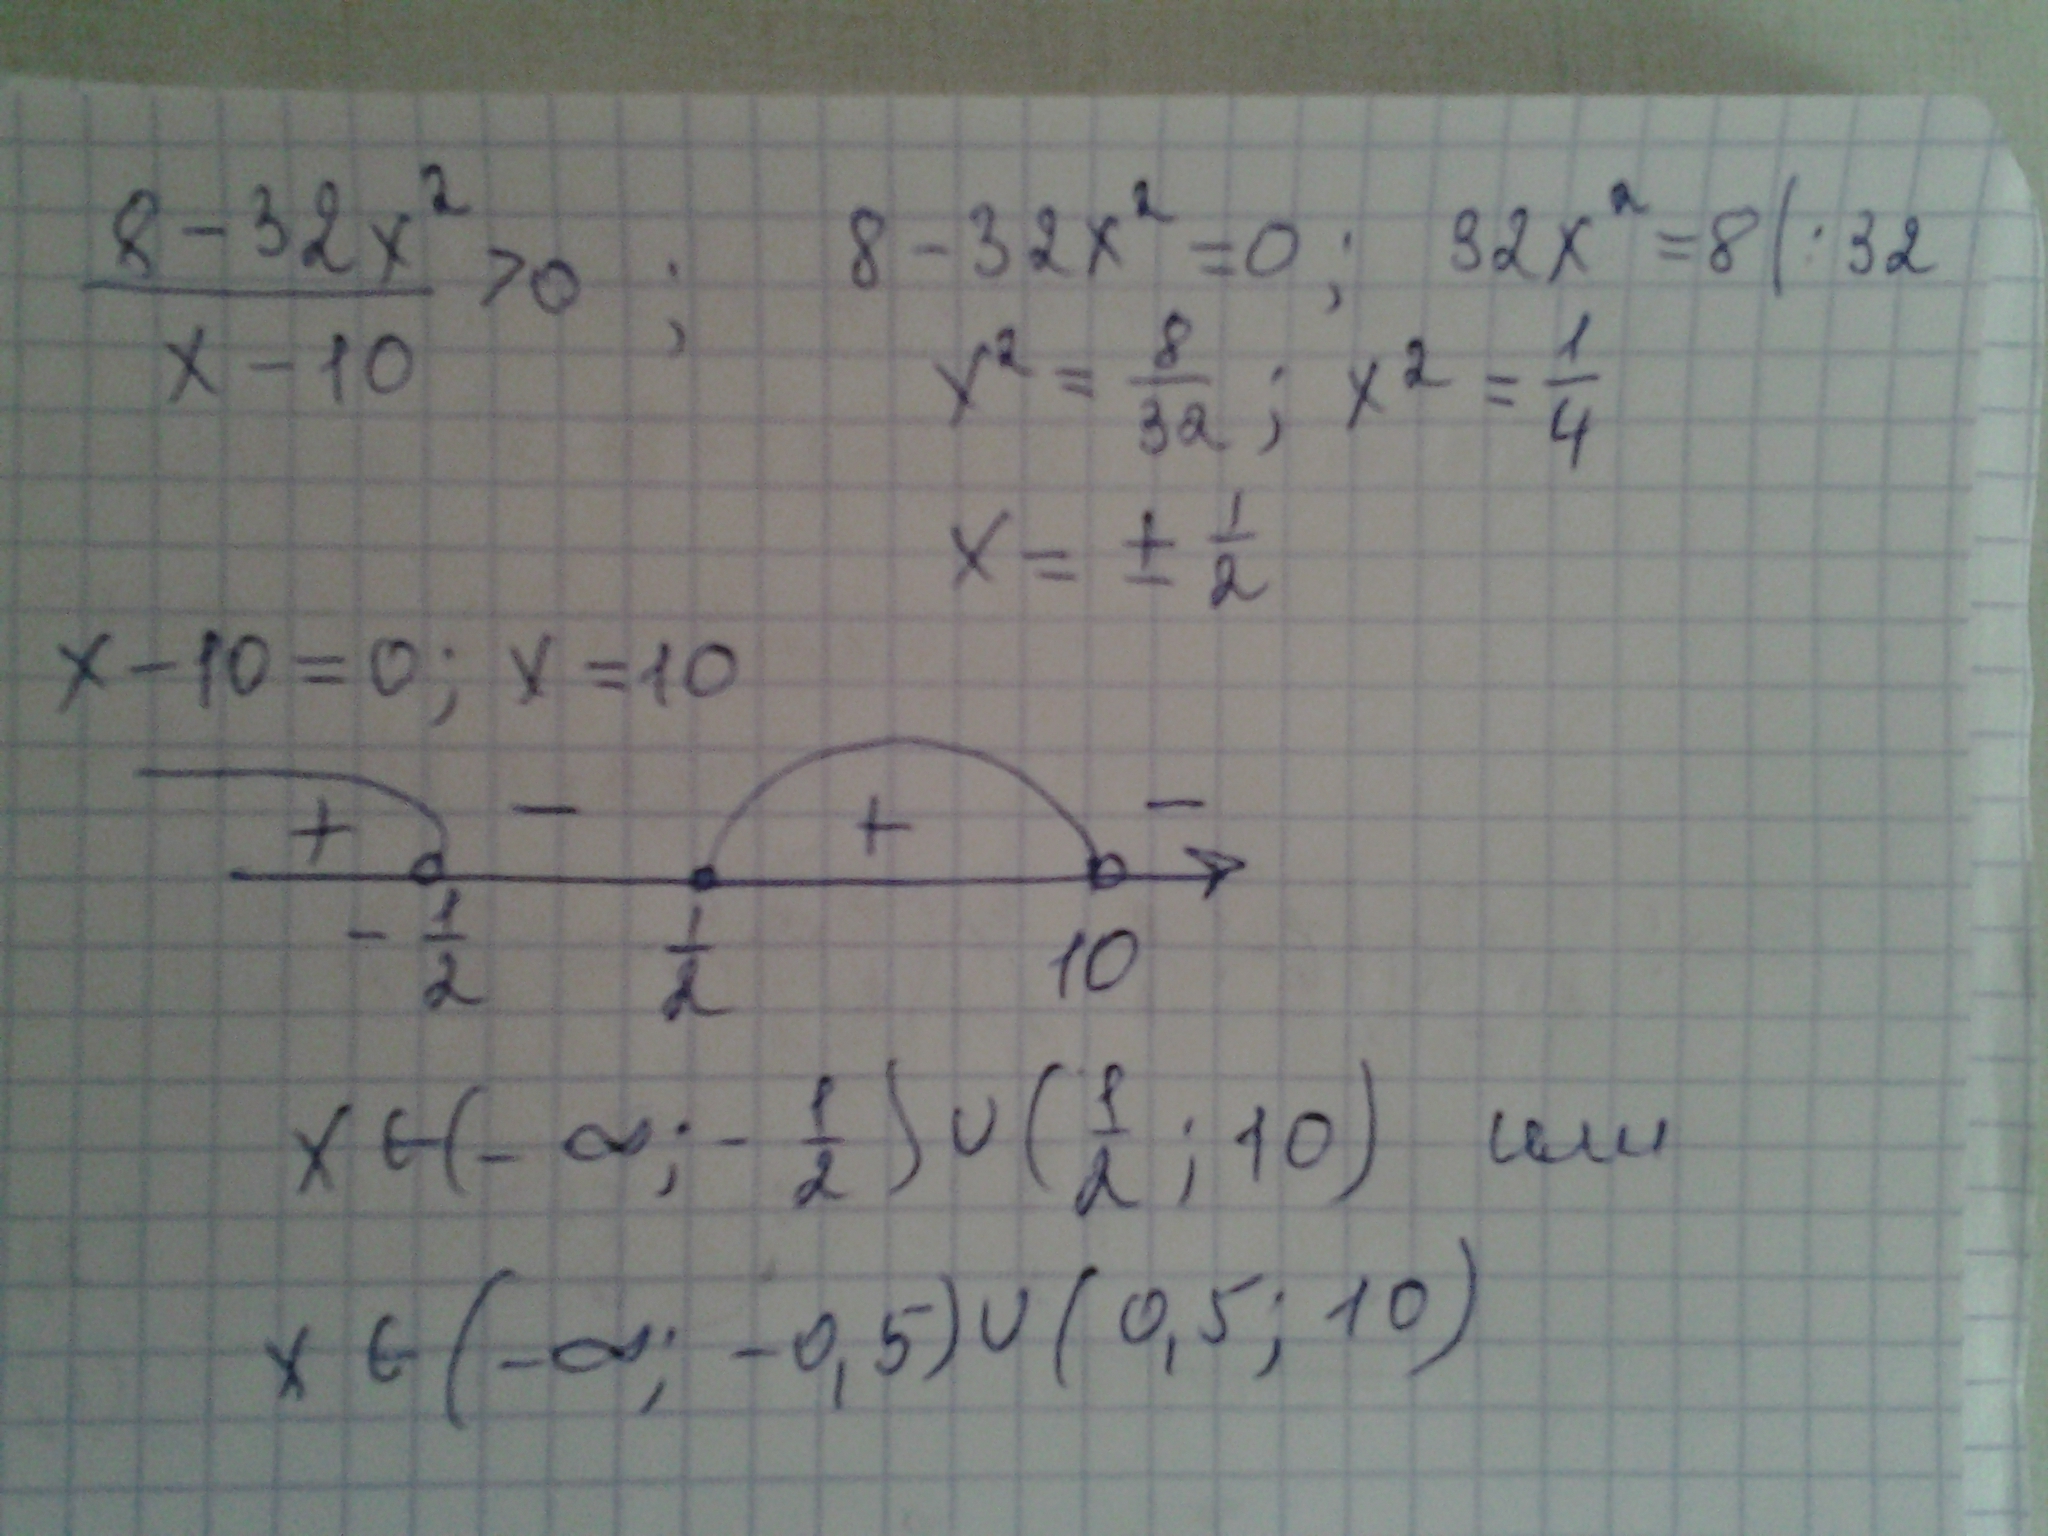 (8-32x²)/(x-10) >0 ; 8-32x²=0; 32x²=8 | :32
x² = 8/32; x² = 1/4
x = ± 1/2
x-10=0; x=10
+ - + -
-1/2 1/2 10
x ∈ (-∞; -1/2) ∪ (1/2; 10) или
x ∈ (-∞; -0,5) ∪ (0,5; 10)